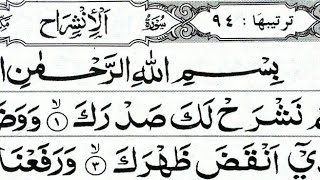 ترتيبها : ٩٤ سُوْرَةُ اَلْاِنْشِرَاح
بِسْمِ اللهِ الرَّحْمٰنِ
نَشْرَحْ لَكَ صَدْرَكَ ۝١
اَنْقَضَ ظَهْرَكَ ۝٣ وَرَفَعْنَا